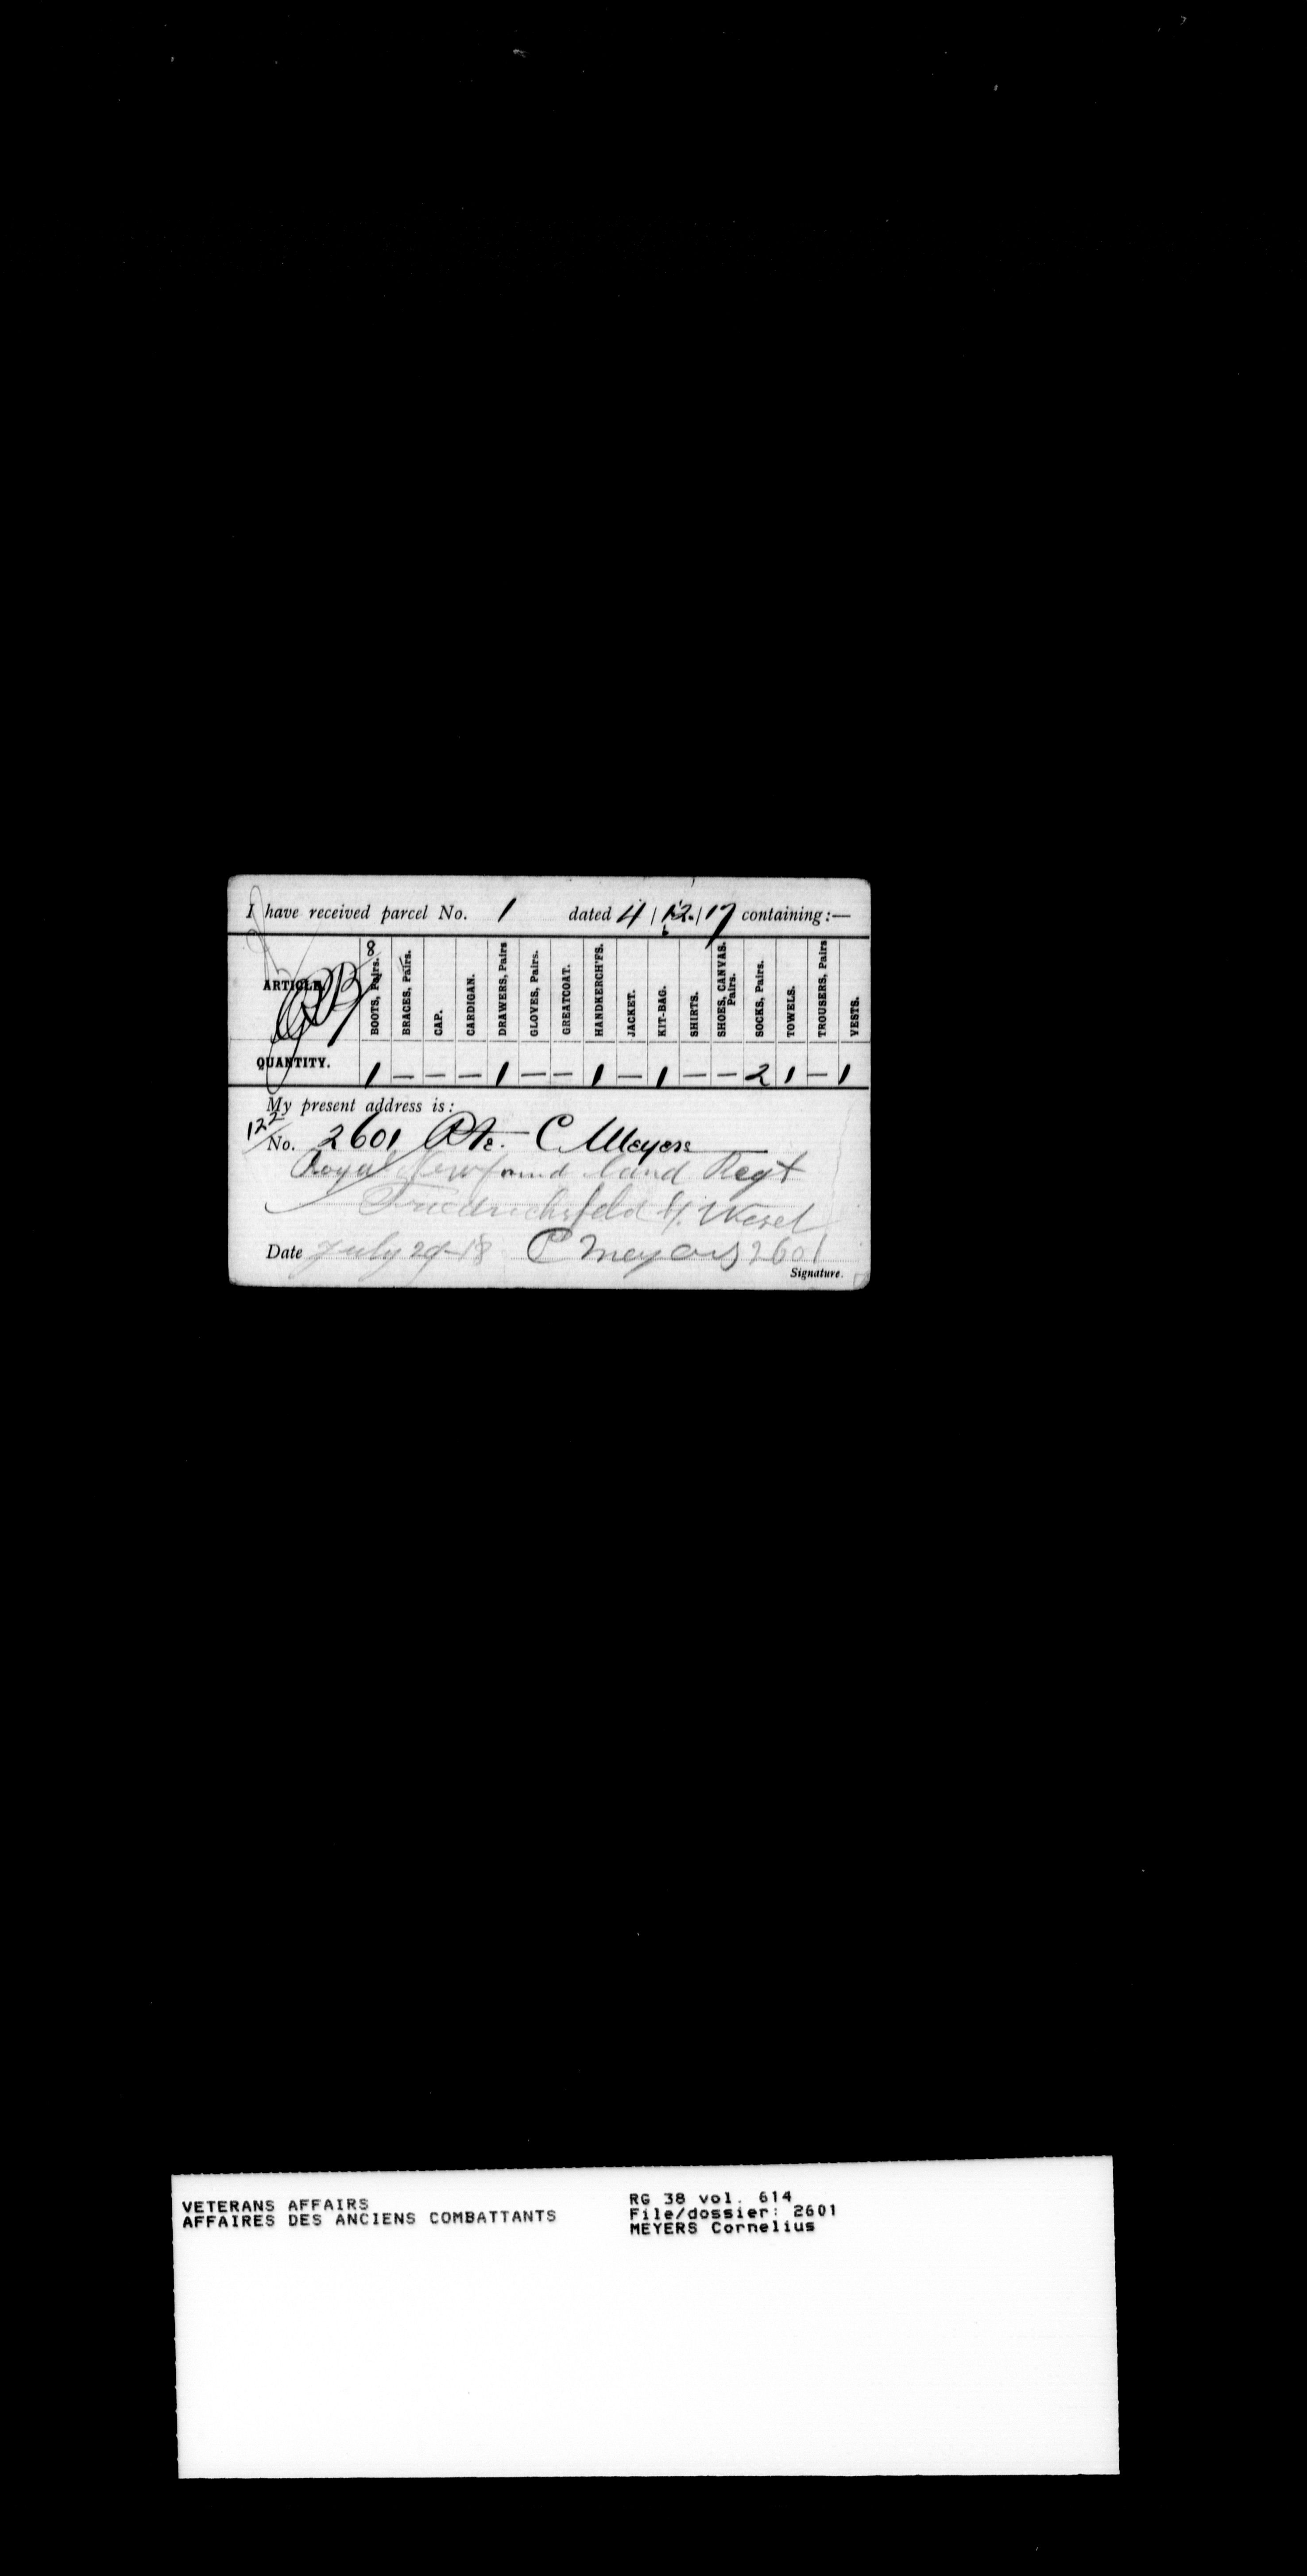 I have received parcel No. 1 dated 4 / 12. / 17 containing:—
ARTICLE.
8
BOOTS, Pairs.
BRACES, Pairs.
CAP.
CARDIGAN.
DRAWERS, Pairs
GLOVES, Pairs.
GREATCOAT.
HANDKERCH'FS.
JACKET.
KIT-BAG.
SHIRTS.
SHOES, CANVAS. Pairs.
SOCKS, Pairs.
TOWELS.
TROUSERS, Pairs
VESTS.
QUANTITY. 1 — — — 1 — — 1 — 1 — — 2 1 — 1
My present address is:
122
No. 2601 Pte. C Meyers
Royal Newfound land Regt
Friedrichsfeld Wesel
Date July 29-18 C Meyers 2601
Signature.
VETERANS AFFAIRS
AFFAIRES DES ANCIENS COMBATTANTS
RG 38 vol. 614
File/dossier: 2601
MEYERS Cornelius